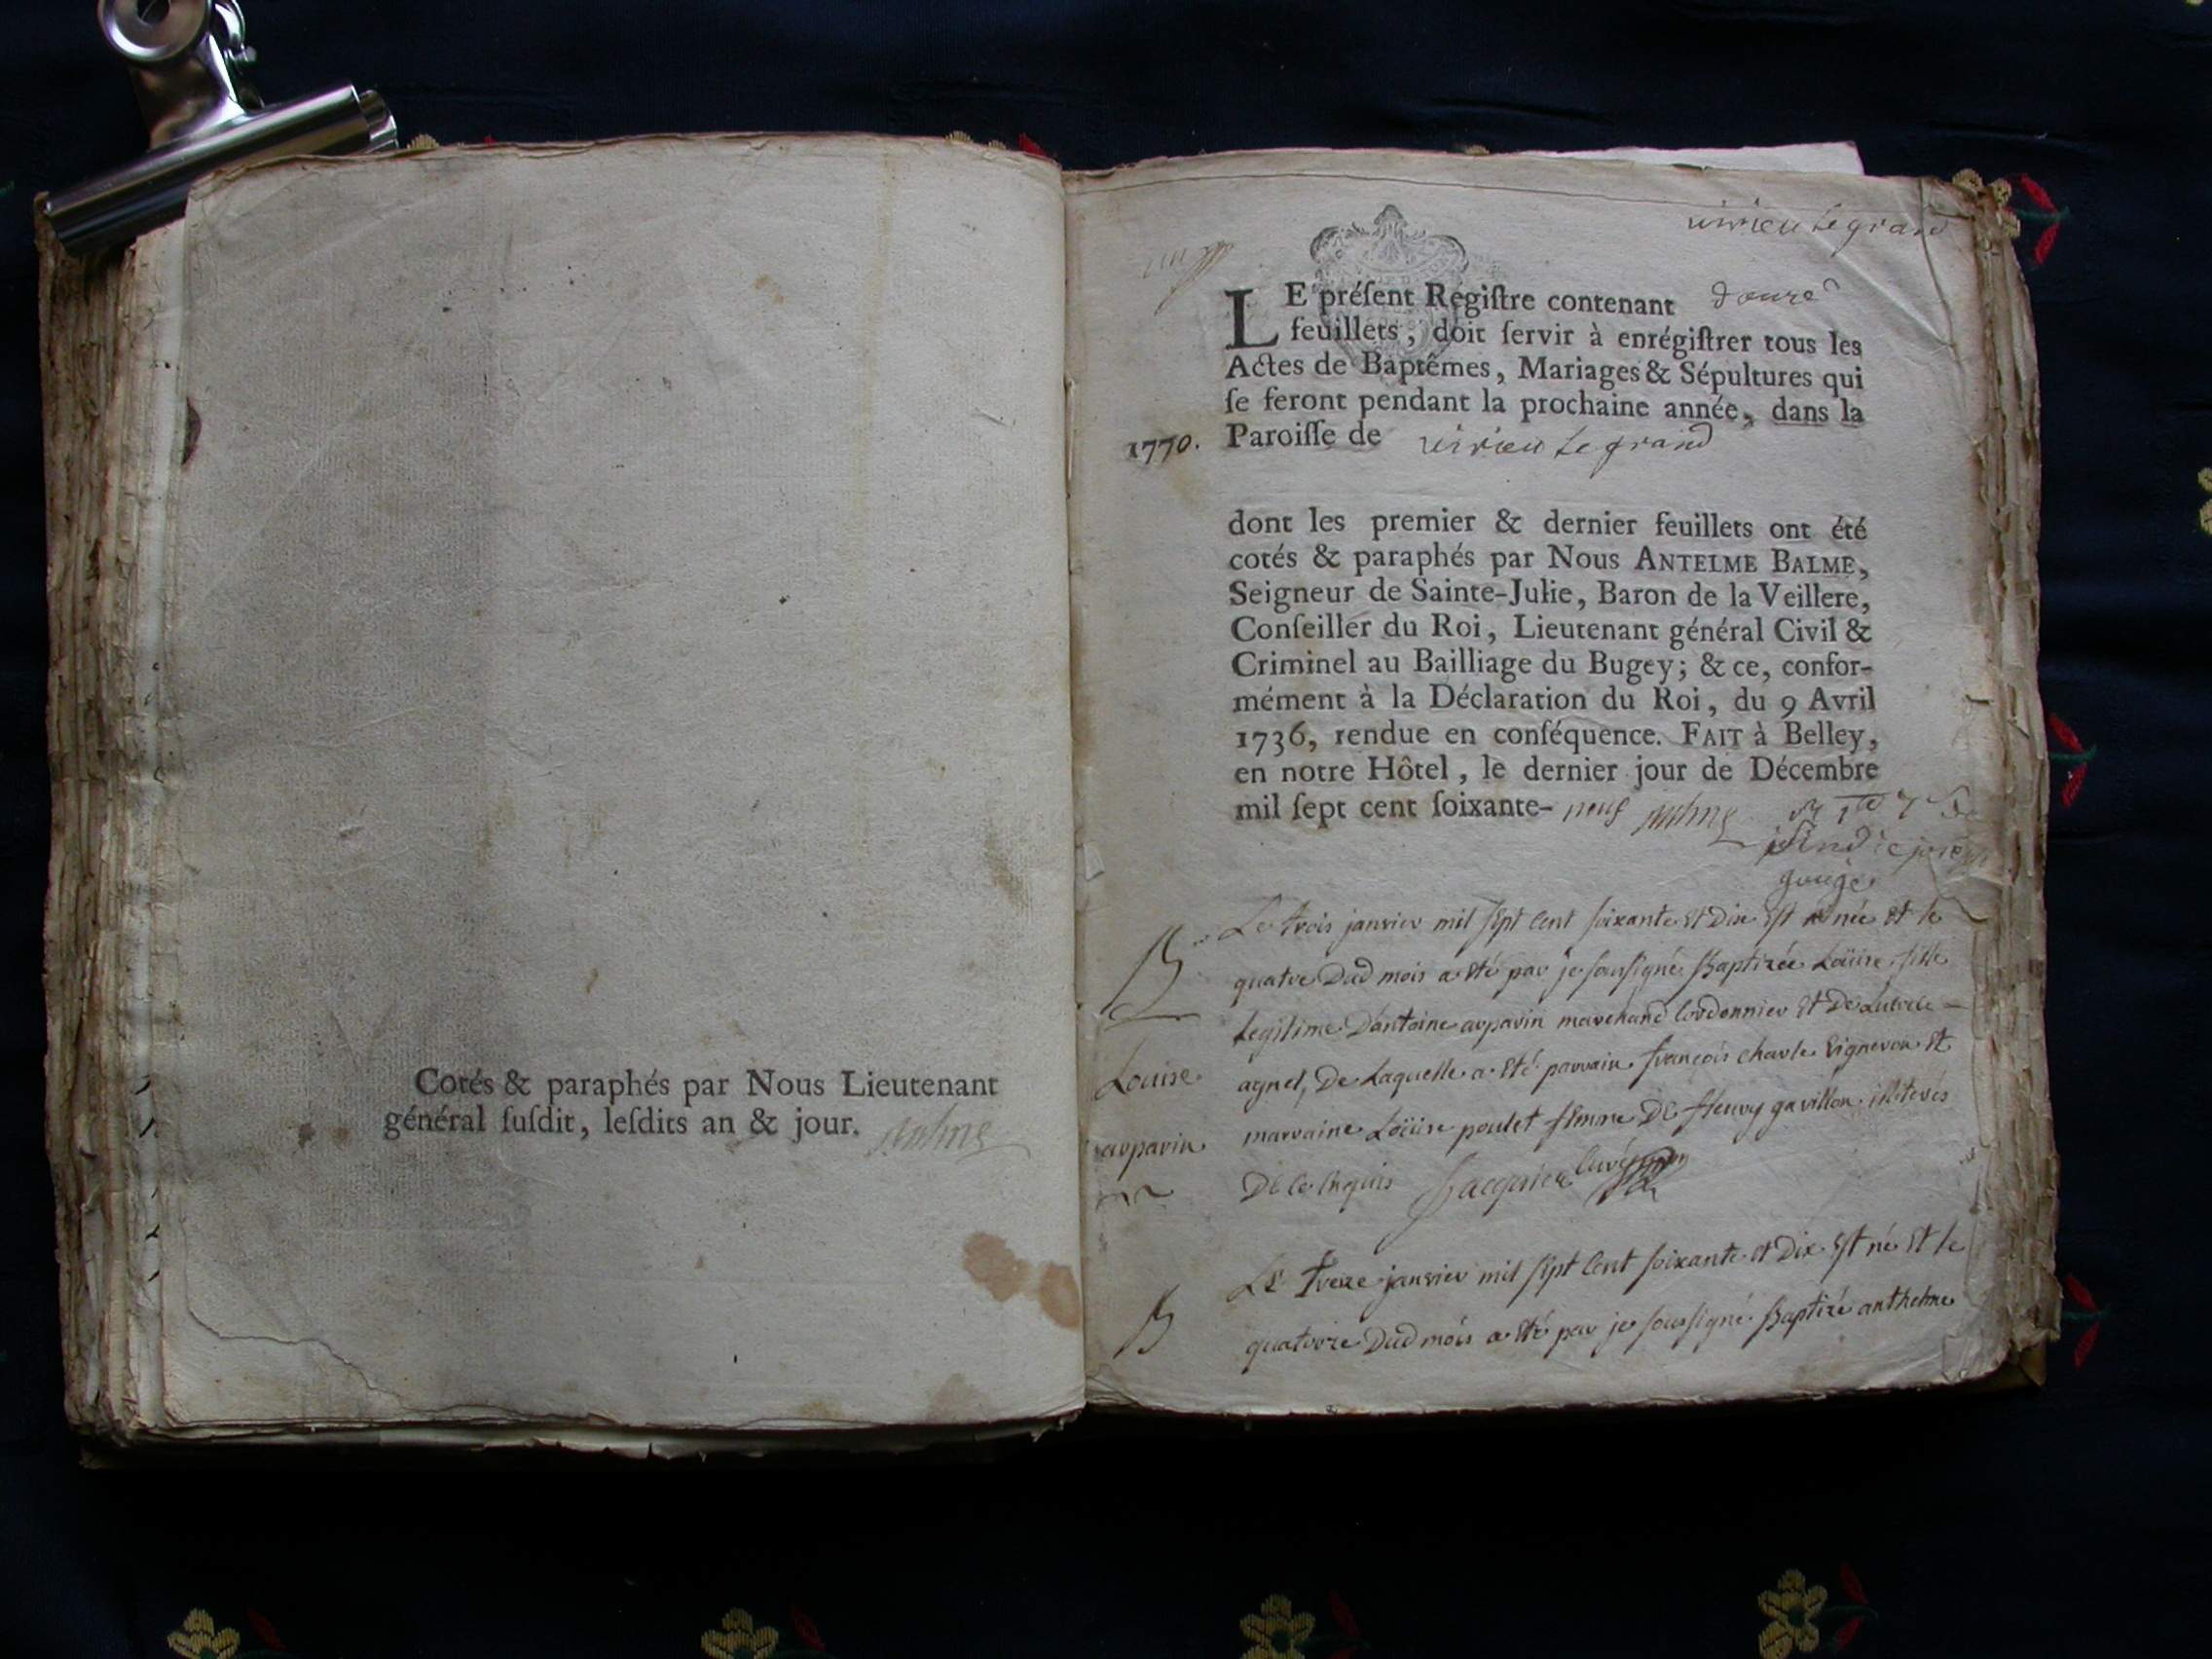 Cotés & paraphés par Nous Lieutenant
général ſuſdit, leſdits an & jour.
virieu le grand
LE préſent Régiſtre contenant douze
feuillets, doit ſervir à enrégiſtrer tous les
Actes de Baptêmes, Mariages & Sépultures qui
ſe feront pendant la prochaine année, dans la
1770. Paroiſſe de virieu le grand
dont les premier & dernier feuillets ont été
cotés & paraphés par Nous ANTELME BALME,
Seigneur de Sainte-Julie, Baron de la Veillere,
Conſeiller du Roi, Lieutenant général Civil &
Criminel au Bailliage du Bugey; & ce, confor-
mément à la Déclaration du Roi, du 9 Avril
1736, rendue en conſéquence. FAIT à Belley,
en notre Hôtel, le dernier jour de Décembre
mil ſept cent ſoixante- neuf
B
Louise
arparin
Le trois janvier mil sept cent soixante et dix est née et le
quatre dud mois a eté par je soussigné Baptizée Loüise fille
legitime d'antoine arparin marchand cordonnier et de
agnel, de laquelle a eté parrain françois charle vigneron et
marraine Loüise poulet femme de fleury gavillon illiterés
de ce enquis Jacquier curé
B
Le treze janvier mil sept cent soixante et dix est né et le
quatorze dud mois a eté par je soussigné Baptizé anthelme